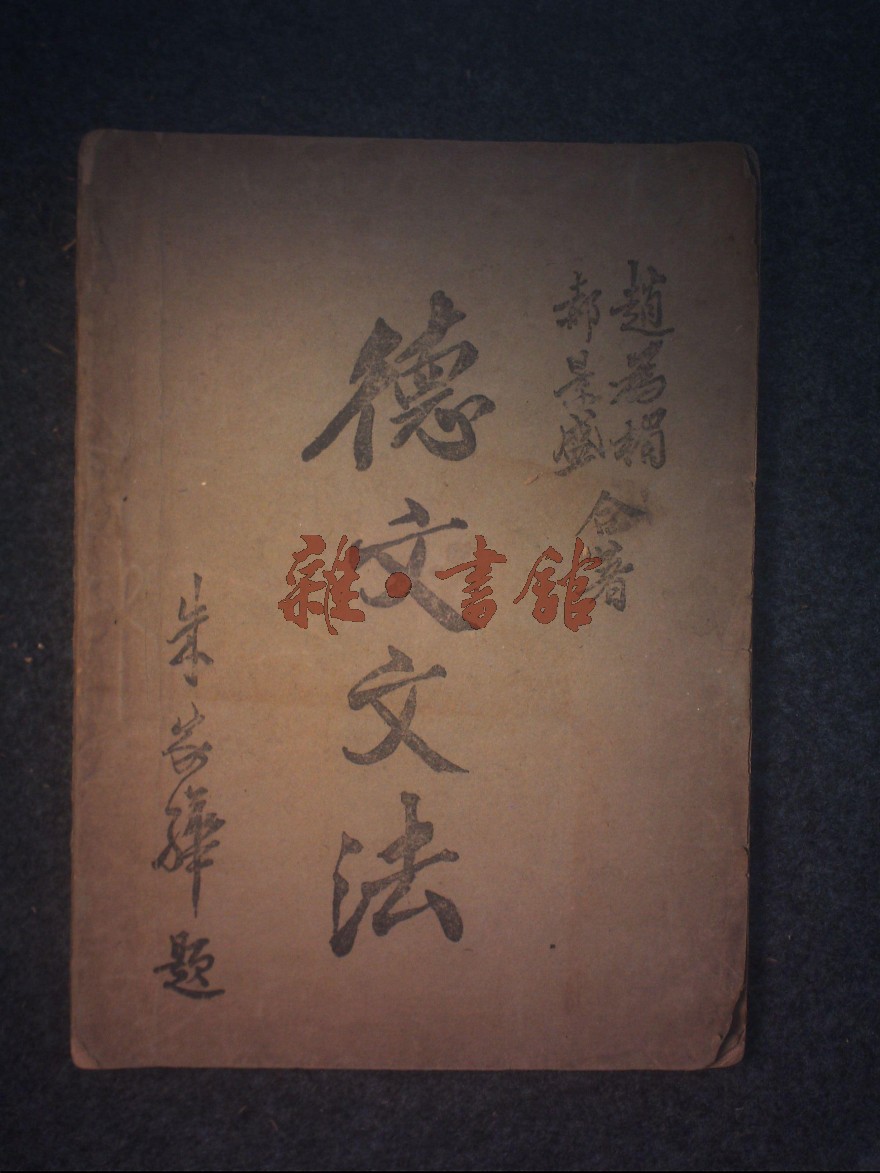 趙為楣
郝景盛
合著
德文文法
朱家驊題
雜·書館